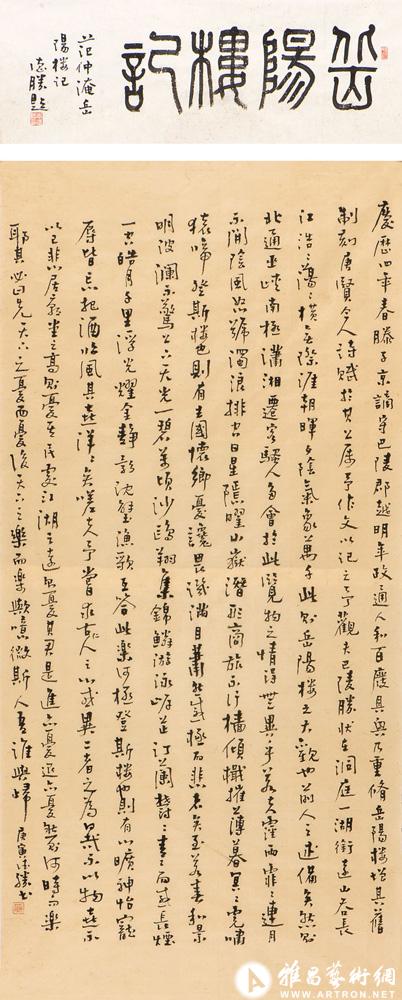 岳陽樓記
范仲淹岳
陽樓記
德勝題
慶歷四年春滕子京謫守巴陵郡越明年政通人和百廢具興乃重脩岳陽樓增其舊
制刻唐賢今人詩賦於其上屬予作文以記之予觀夫巴陵勝狀在洞庭一湖銜遠山吞長
江浩〻蕩〻橫無際涯朝暉夕陰氣象萬千此則岳陽樓之大觀也前人之述備矣然則
北通巫峽南極瀟湘遷客騷人多會於此覽物之情得無異乎若夫霪雨霏〻連月
不開陰風怒號濁浪排空日星隱曜山嶽潛形商旅不行檣傾楫摧薄暮冥〻虎嘯
猿啼登斯樓也則有去國懷鄉憂讒畏譏滿目蕭然感極而悲者矣至若春和景
明波瀾不驚上下天光一碧萬頃沙鷗翔集錦鱗游泳岸芷汀蘭鬱〻青〻而或長煙
一空皓月千里浮光耀金靜影沈璧漁歌互答此樂何極登斯樓也則有心曠神怡寵
辱皆忘把酒臨風其喜洋〻矣嗟夫予嘗求古仁人之心或異二者之為何哉不以物喜不
以己悲居廟堂之高則憂其民處江湖之遠則憂其君是進亦憂退亦憂然則何時而樂
耶其必曰先天下之憂而憂後天下之樂而樂歟噫微斯人吾誰與歸 庚寅德勝書
雅昌藝術網
WWW.ARTRON.NET